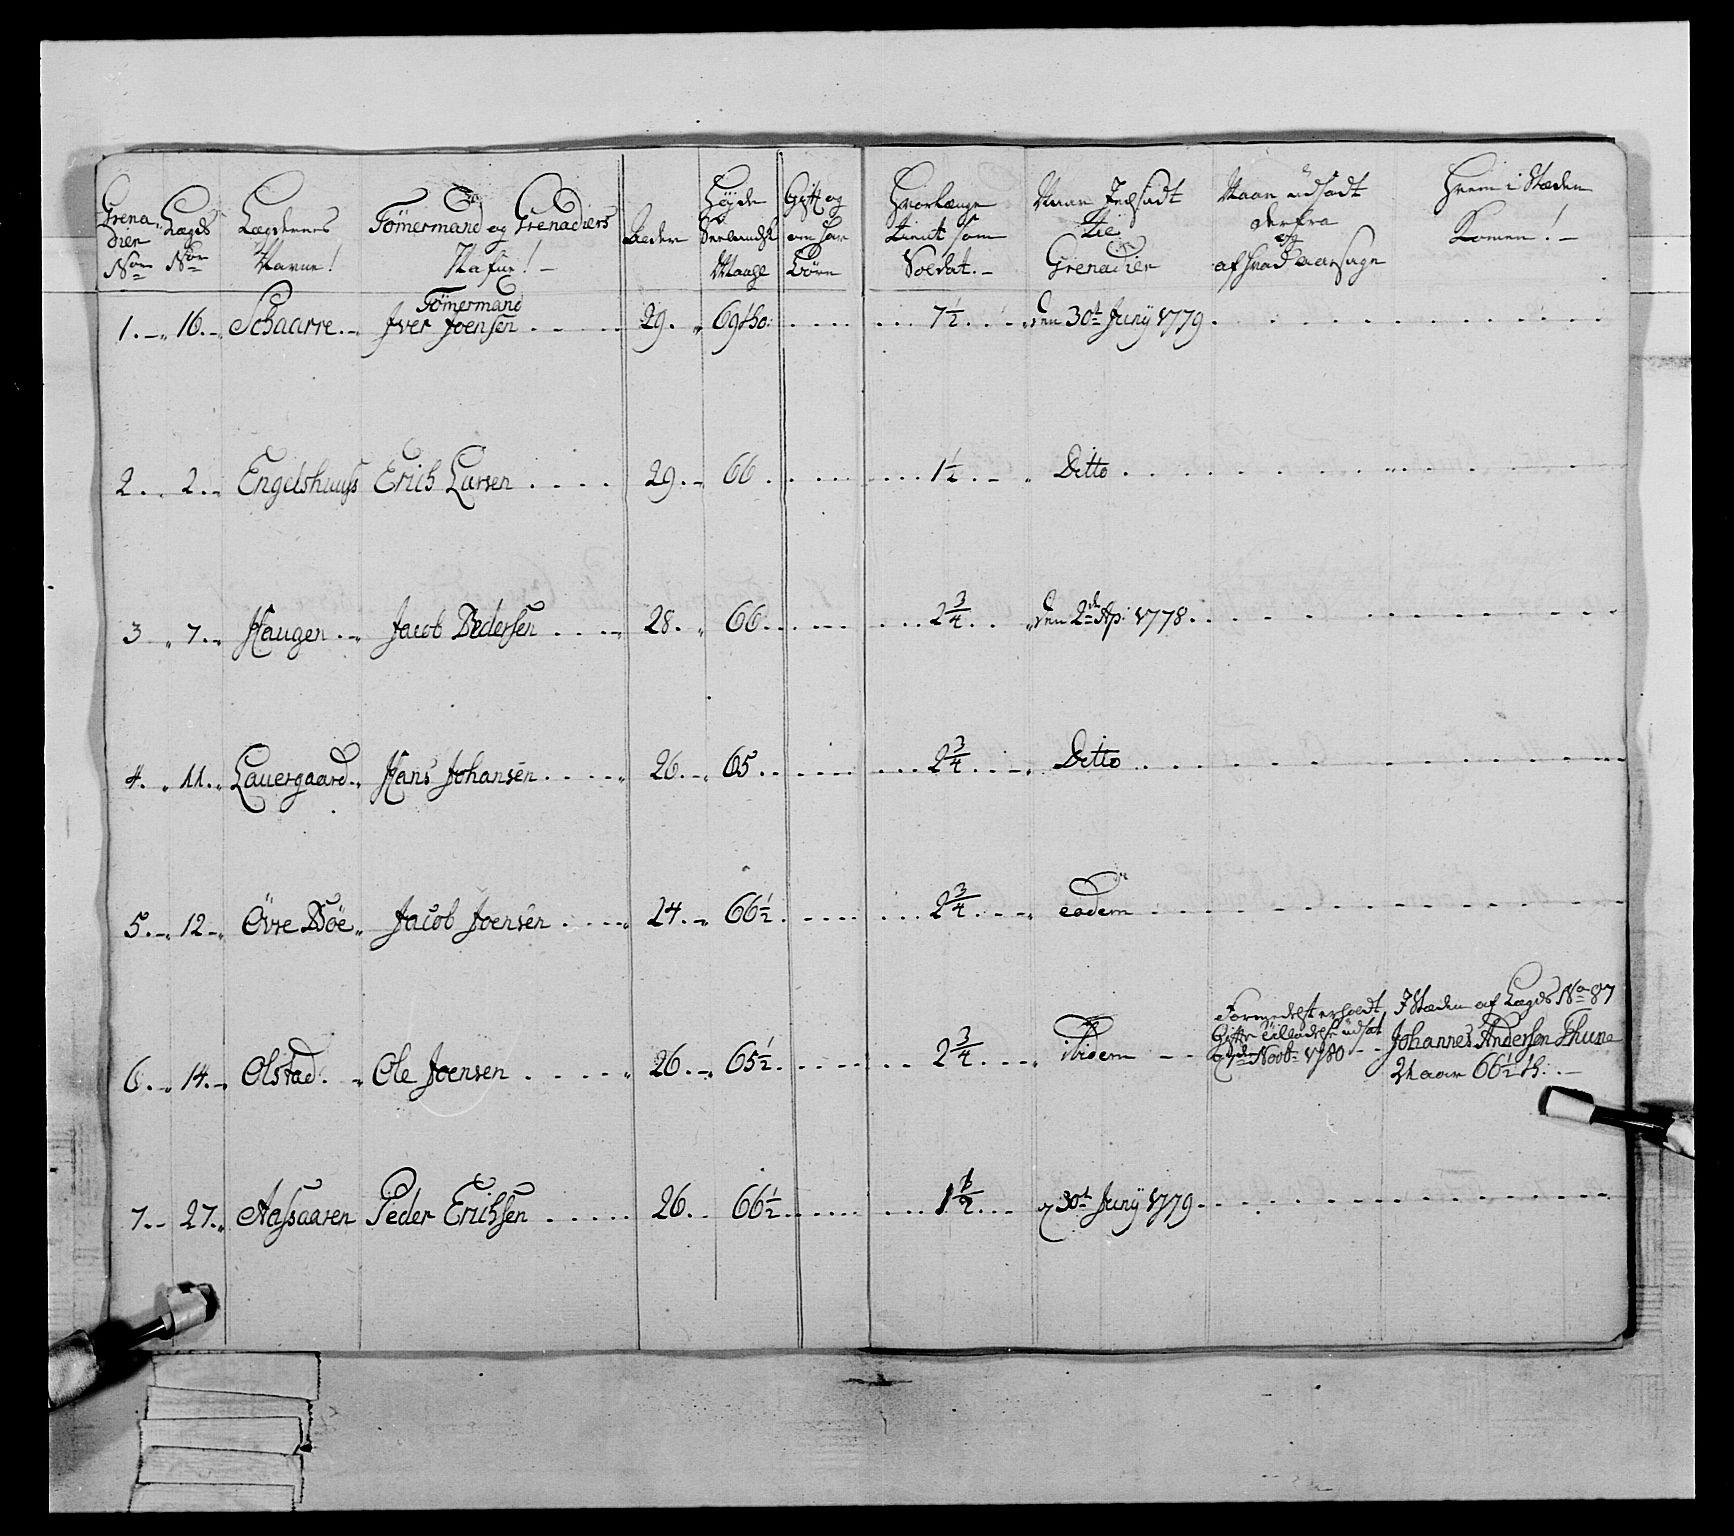 Grena
dier
No
Lægds
No
Lægdernes
Navne!
Tömermand og Grenadiers
Nafne! -
Alder
Höyde
Seelandsk
Maage
Gift og
om har
Börn
Hvorlænge
tient som
Soldat. -
Naar Indsadt
til
Grenadier
Naar udsadt
derfra
og
af hvad aarsage
Hvem i Stæden
Komen! -
Tömermand
1. 16. Schaarre. Jver Joensen 29. 69 7 1/2 den 30t Junÿ 1779
2. 2. Engelshuus Erich Larsen 29. 66 1 1/2 Ditto
3 7. Haugen Jacob Pedersen 28. 66 2 3/4 den 2de Ap: 1778
4. 11. Lauergaard Hans Johansen 26 65 2 3/4 Ditto
5. 12 Övre Döe Jacob Joensen 24. 66 1/2 2 3/4 eodem
6. 14. Olstad Ole Joensen 26 65 1/2 2 3/4 ibidem
Formedelst erholdt
Gifte Tilladelse udsat
d 1de Novb 1780
I Stæden af Lægds No 87
Johannes Andersen Thune
21 aar 66 1/2 th. -
7. 27. Aassaaren Peder Erichsen 26. 66 1/2 1 1/2 d 30t Junÿ 1779